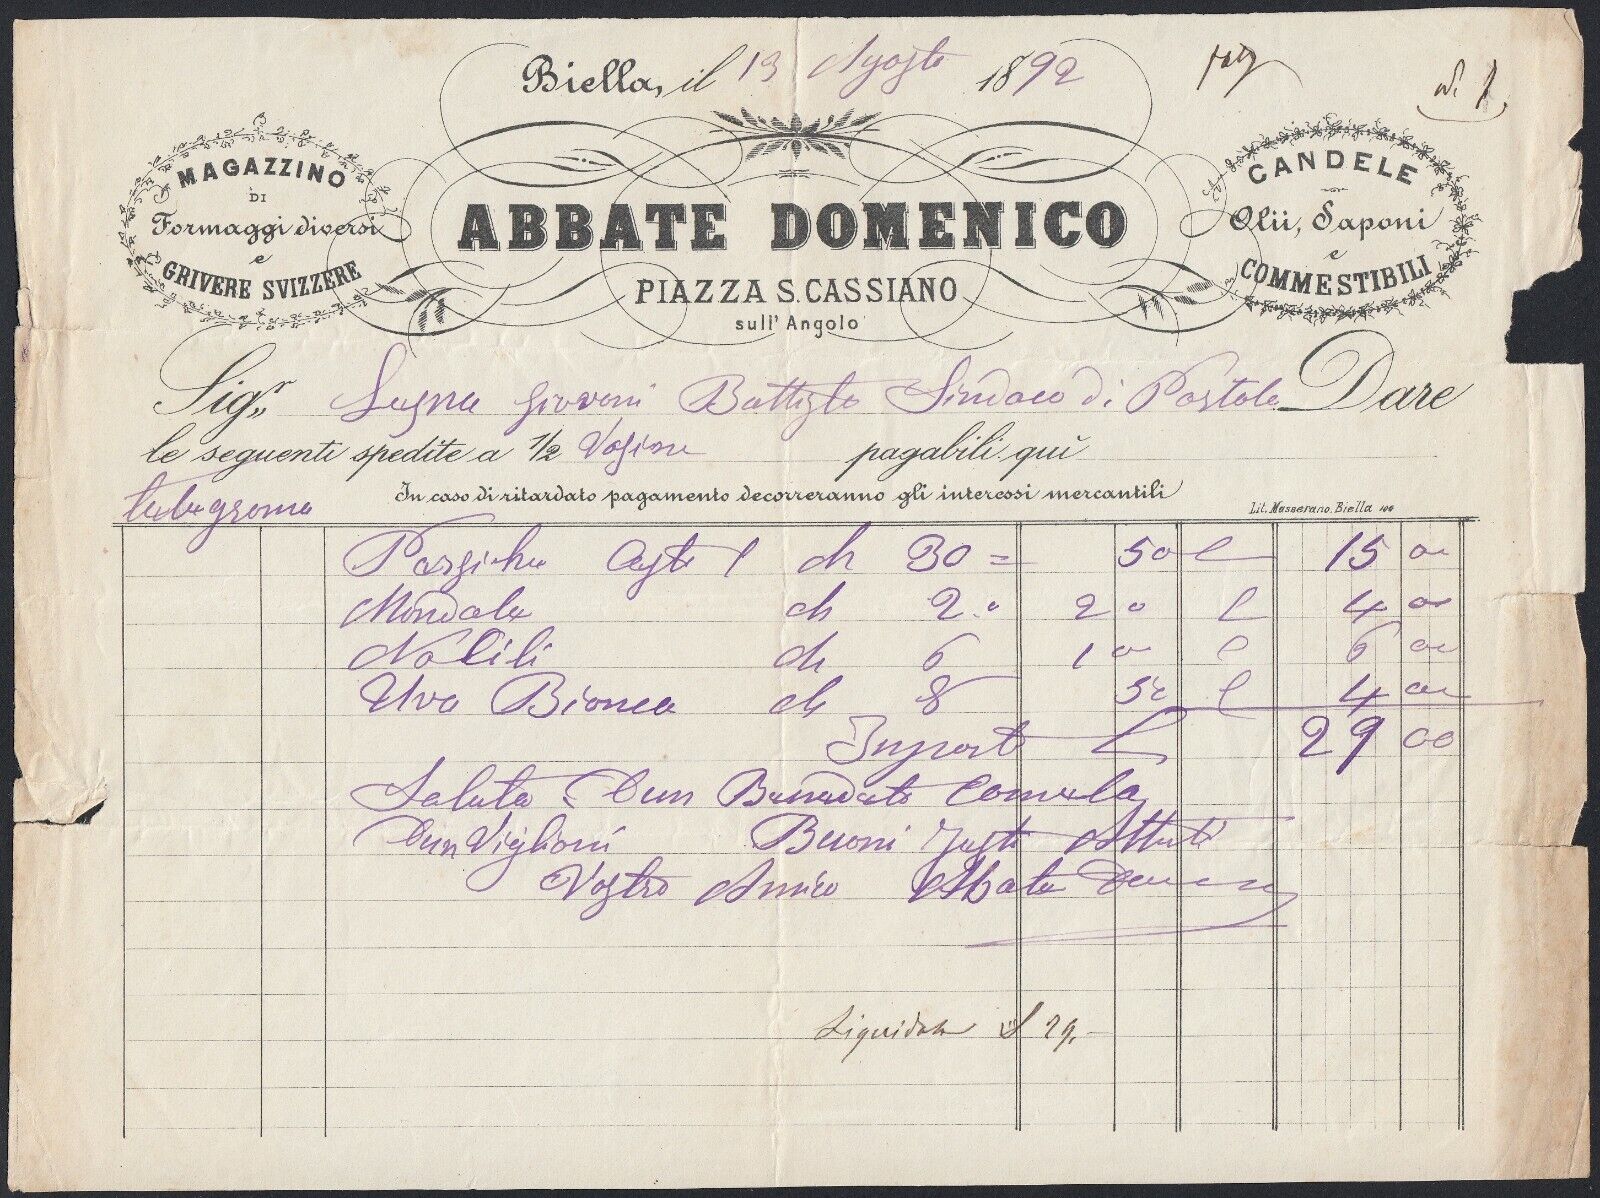 Biella, il 13 Agosto 1892
N. 1
MAGAZZINO
DI
Formaggi diversi
e
GRIVERE SVIZZERE
ABBATE DOMENICO
PIAZZA S. CASSIANO
sull' Angolo
CANDELE
Olii, Saponi
e
COMMESTIBILI
Sigr. Giovoni Battista Sindaco di Portola Dare
le seguenti spedite a 1/2 pagabili quì
In caso di ritardato pagamento decorreranno gli interessi mercantili
Lit. Masserano. Biella
ch 30 = 50 L 15 00
ch 2. 2 L 4 00
ch 6 1 L 6 00
Uva Bionca ch 8 50 L 4 00
Importo L 29 00
Saluta Don
Don Viglioni
Vostro Amico Abate
Liquidata L 29.-